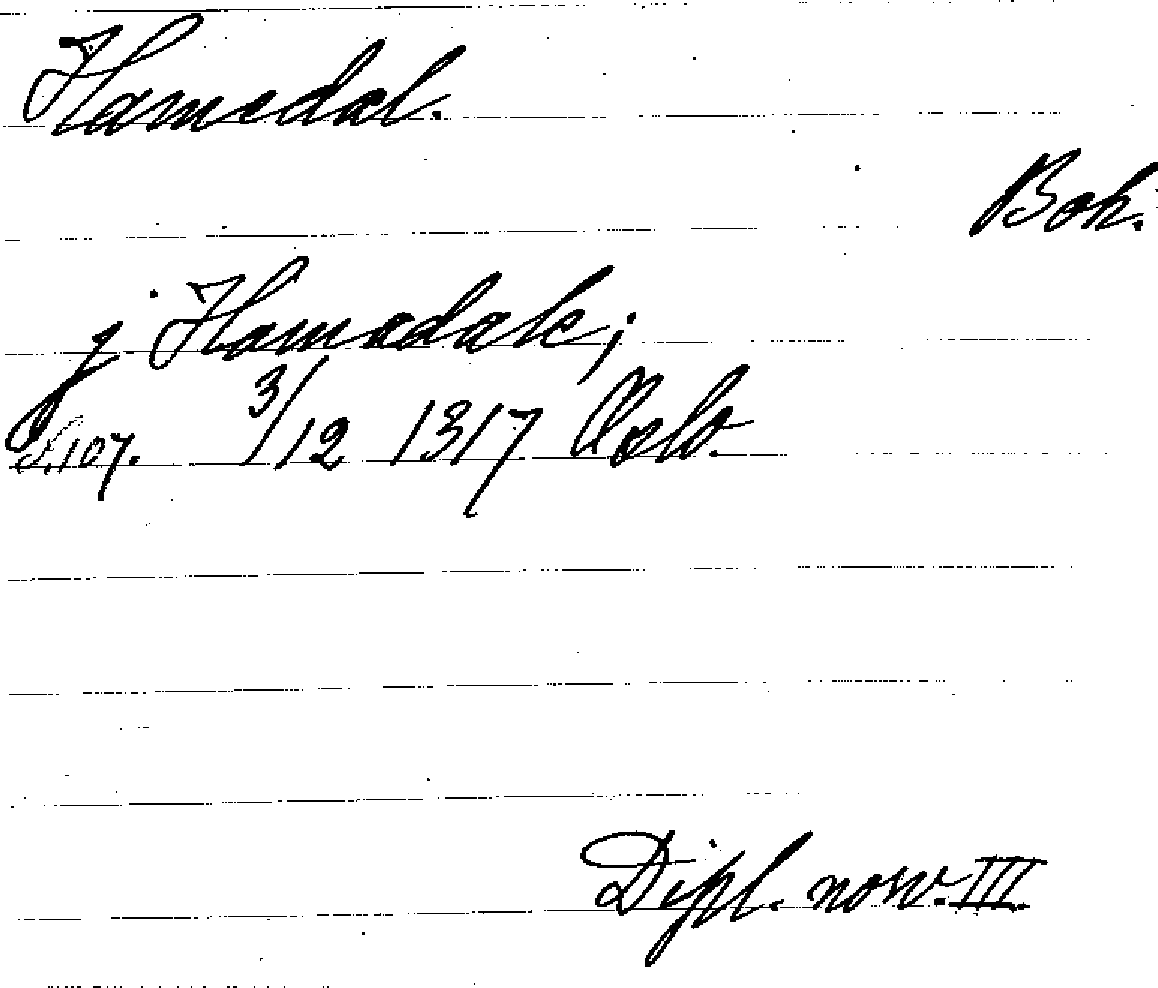 Hamedal.
Boh.
j Hamadale;
S.107. 3/12 1317 Oslo.
Dipl. norv. III